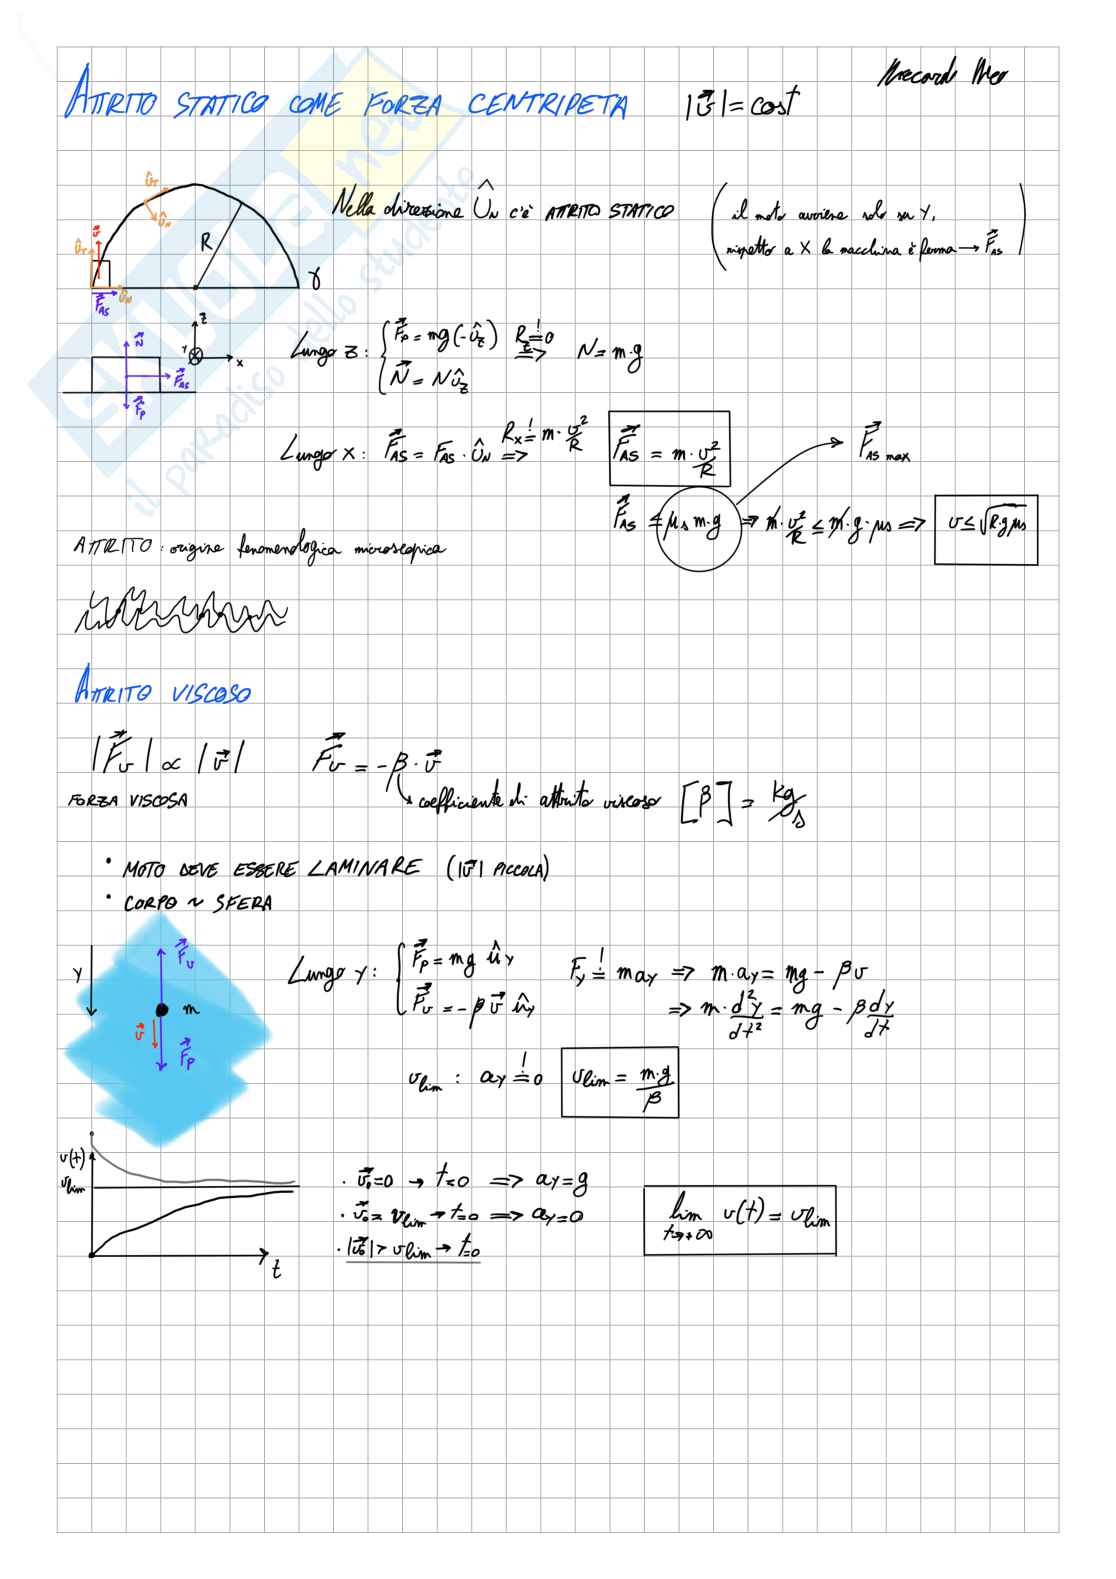 ATTRITO STATICO COME FORZA CENTRIPETA |v⃗| = cost
Nella direzione Û_N c'è ATTRITO STATICO
(il moto avviene solo su Y,
rispetto a X la macchina è ferma → F⃗_AS)
û_T
û_N
v⃗
R
û_T
γ
F⃗_AS û_N
z
Y
x
N⃗
F⃗_AS
F⃗_P
Lungo z: { F⃗_P = mg(-û_z) R_z =! 0 ⇒ N = m·g
N⃗ = N û_z
Lungo x: F⃗_AS = F_AS · Û_N ⇒ R_x =! m · v²/R F⃗_AS = m · v²/R
F⃗_AS max
F⃗_AS ≤ μ_s m·g ⇒ m · v²/R ≤ m·g·μs ⇒ v ≤ √R·g μs
ATTRITO: origine fenomenologica microscopica
ATTRITO VISCOSO
|F⃗_v| ∝ |v⃗| F⃗_v = -β · v⃗
FORZA VISCOSA
coefficiente di attrito viscoso [β] = kg/s
• MOTO DEVE ESSERE LAMINARE (|v⃗| PICCOLA)
• CORPO ~ SFERA
Y
F⃗_v
m
v⃗
F⃗_P
Lungo y: { F⃗_P = mg û_y F_y =! m a_y ⇒ m·a_y = mg - βv
F⃗_v = -β v⃗ û_y ⇒ m · d²y/dt² = mg - β dy/dt
v_lim : a_y =! 0 v_lim = m·g/β
v(t)
v_lim
t
· v⃗₀=0 → t=0 ⇒ a_y = g
· v⃗₀ = v_lim → t=0 ⇒ a_y=0
· |v⃗₀| > v_lim → t=0
lim t→+∞ v(t) = v_lim
SKUOLA.net
il paradiso dello studente